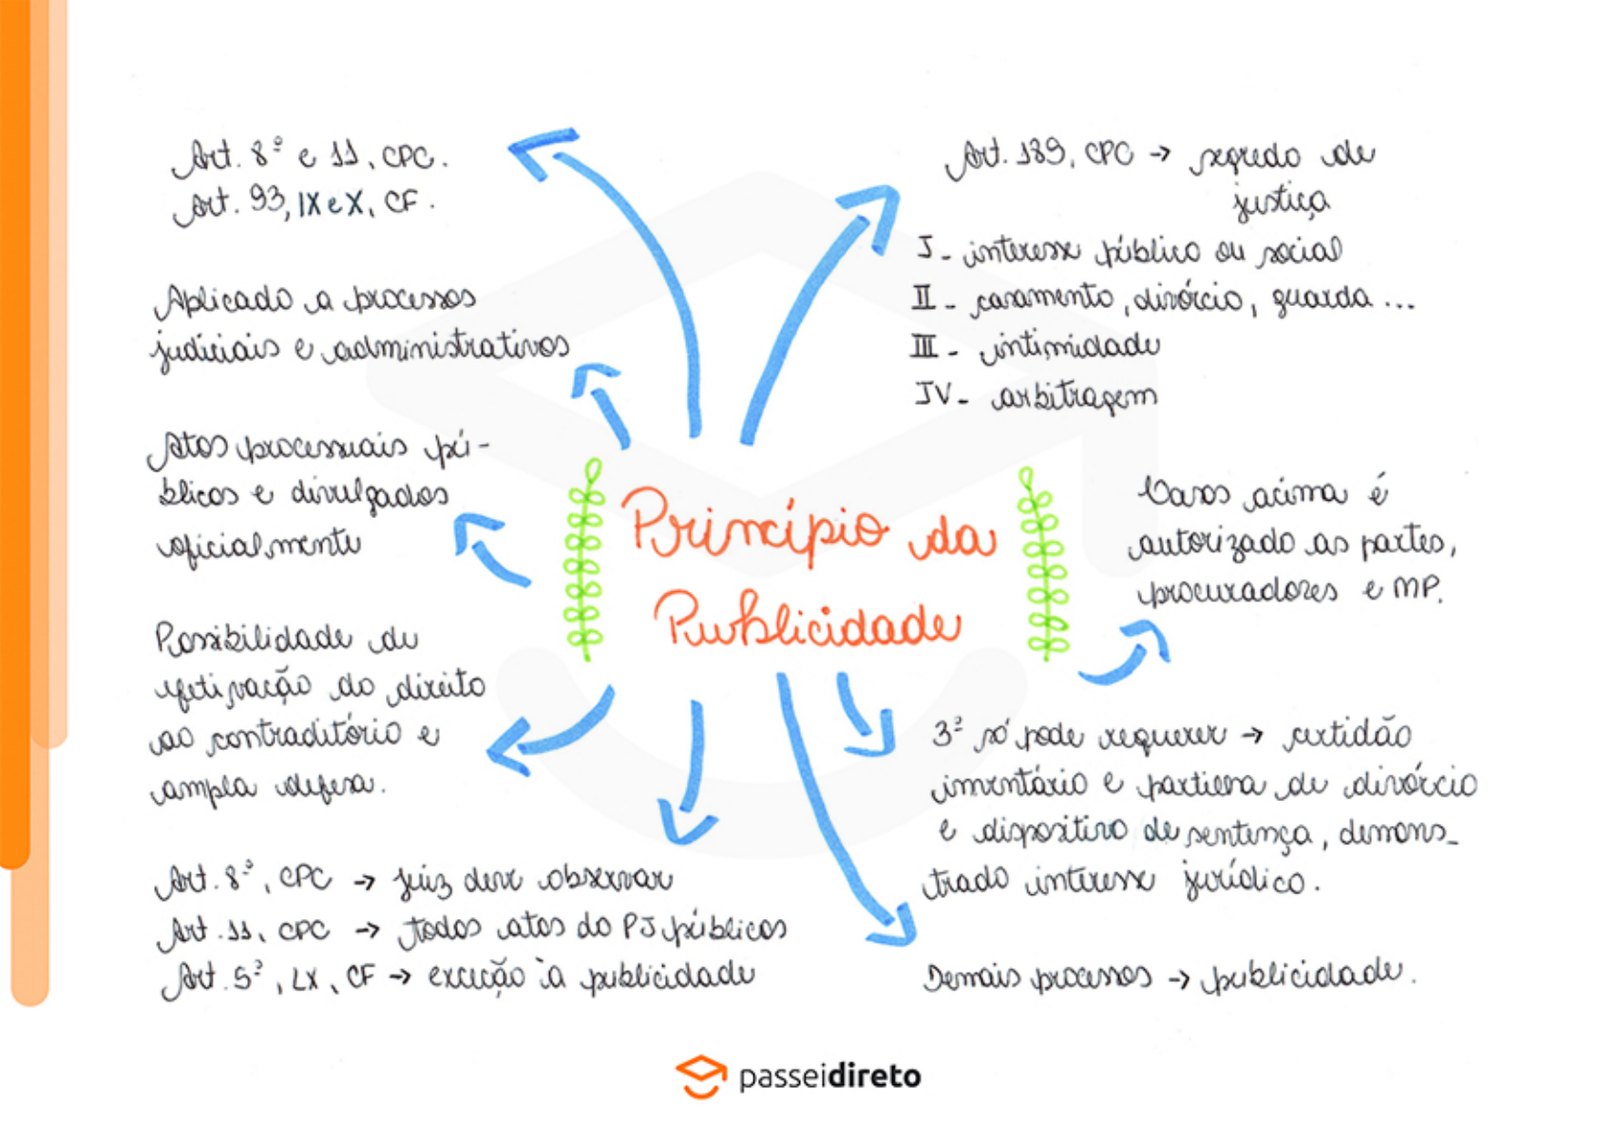 Art. 8º e 11, CPC.
Art. 93, IX e X, CF.
Aplicado a processos
judiciais e administrativos
Atos processuais pú-
blicos e divulgados
oficialmente
Possibilidade de
efetivação do direito
ao contraditório e
ampla defesa.
Art. 8º, CPC → juiz deve observar
Art. 11, CPC → todos atos do PJ públicos
Art. 5º, LX, CF → exceção à publicidade
Princípio da
Publicidade
Art. 189, CPC → segredo de
justiça
I - interesse público ou social
II - casamento, divórcio, guarda ...
III - intimidade
IV - arbitragem
Casos acima é
autorizado as partes,
procuradores e MP.
3º só pode requerer → certidão
inventário e partilha de divórcio
e dispositivo de sentença, demons-
trado interesse jurídico.
Demais processos → publicidade.
passeidireto